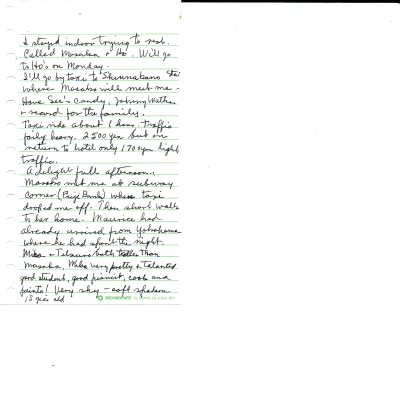 I stayed indoor trying to rest.
Called Masako + Ho. Will go
to Ho's on Monday.
I'll go by taxi to Shinnakano Sta
where Masako will meet me.
Have See's candy, Johnny Mathis
+ record for the families.
Taxi ride about 1 hour. Traffic
fairly heavy. 2500 yen but on
return to hotel only 170 yen light
traffic.
A delight full afternoon.
Masako met me at subway
corner (Bank) where taxi
dropped me off. Then short walk
to her home. Maurice had
already arrived from Yokohama
where he had spent the night.
Mika + both taller than
Masako. Mika very pretty + talented
good student, good pianist, cook and
paints! Very shy - soft spoken
15 year old